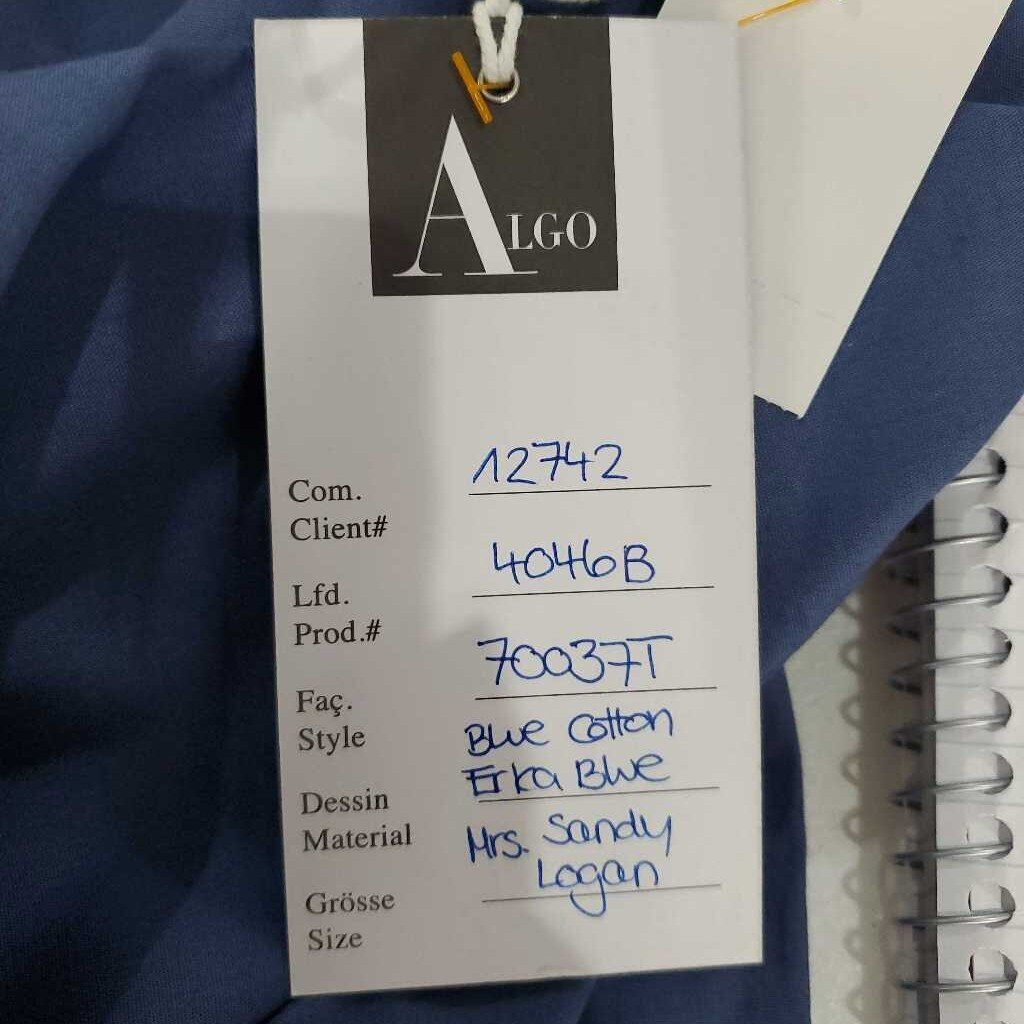 ALGO
Com. 12742
Client#
Lfd. 4046B
Prod.#
Faç. 70037T
Style
Blue Cotton
Erka Blue
Dessin
Material
Mrs. Sandy
Logan
Grösse
Size